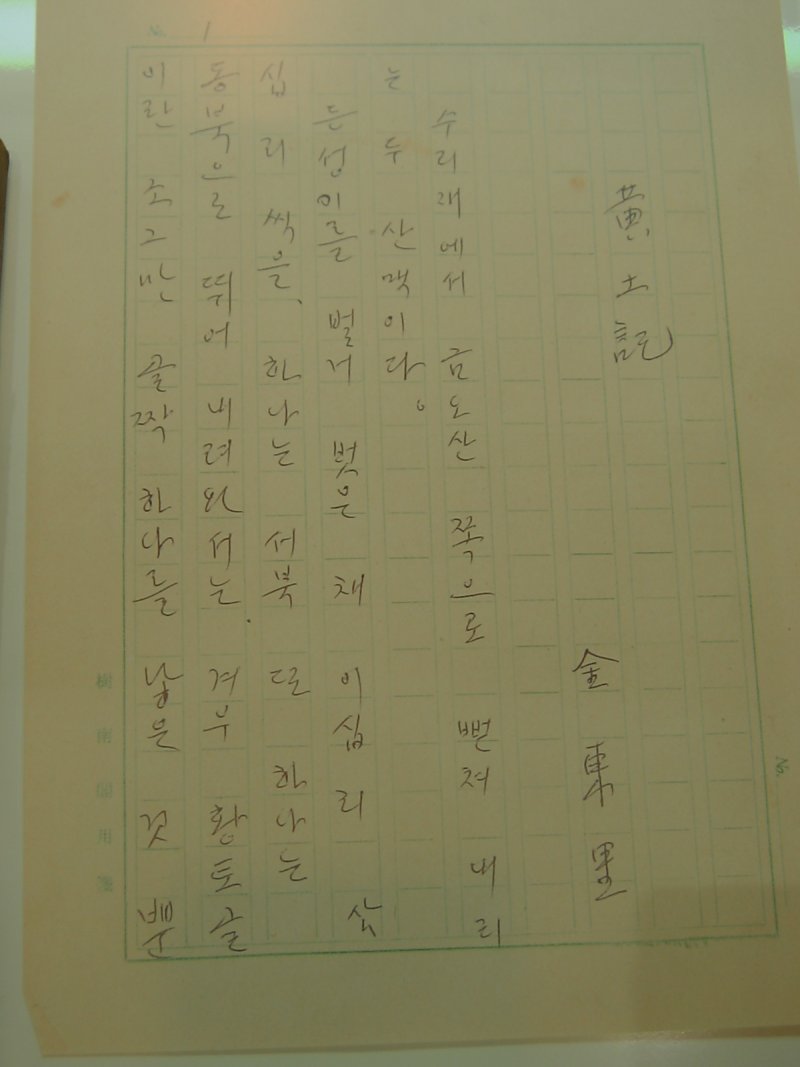 No. 1
黃土記
金東里
수리재에서 금오산 쪽으로 뻗쳐 내리
는 두 산맥이다.
등성이를 벌거 벗은 채 이십 리 삼
십 리 씩을, 하나는 서북으로 하나는
동북으로 뛰어 내려와서는, 겨우 황토골
이란 조그만 골짝 하나를 낳은 것 뿐